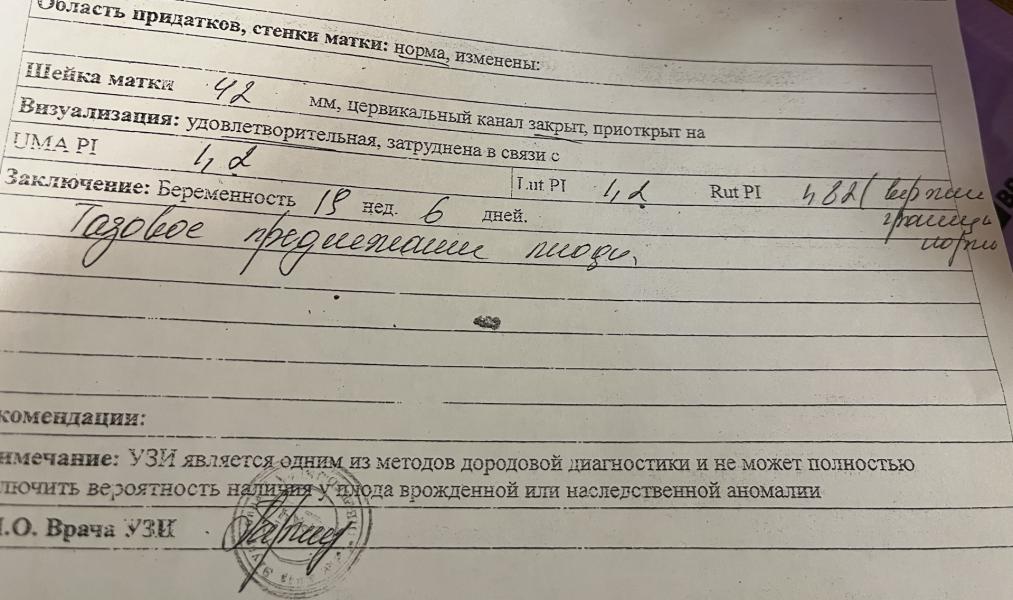 Область придатков, стенки матки: норма, изменены:
Шейка матки 42 мм, цервикальный канал закрыт, приоткрыт на
Визуализация: удовлетворительная, затруднена в связи с
UMA PI 1,2 Lut PI 1,2 Rut PI 1,82 (верхняя
граница
нормы
Заключение: Беременность 19 нед. 6 дней.
Тазовое предлежание плода,
комендации:
имечание: УЗИ является одним из методов дородовой диагностики и не может полностью
лючить вероятность наличия у плода врожденной или наследственной аномалии
.О. Врача УЗИ